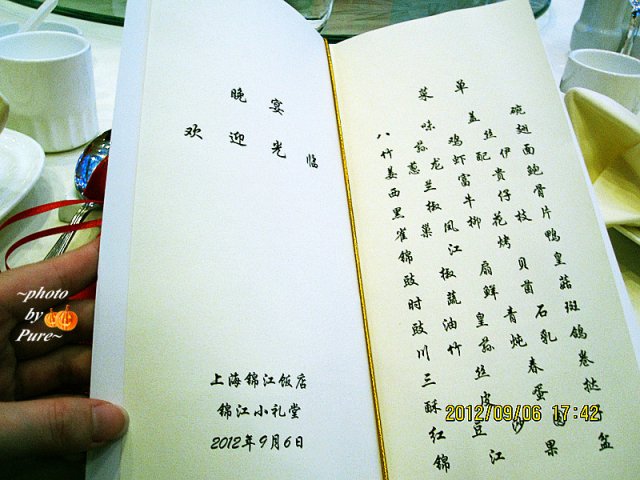 晚宴
欢迎光临
上海锦江饭店
锦江小礼堂
2012年9月6日
菜单
八味盖碗
竹荪鸡丝翅
姜葱龙虾配伊面
西兰富贵鲍
黑椒牛仔骨
雀巢凤柳花枝片
锦江烤鸭
豉椒扇贝皇
时蔬鲜菌菇
豉油皇青石斑
川竹荪炖乳鸽
三丝春卷
酥皮蛋挞
红豆沙
锦江果盆
~photo
by
Pure~
2012/09/06 17:42